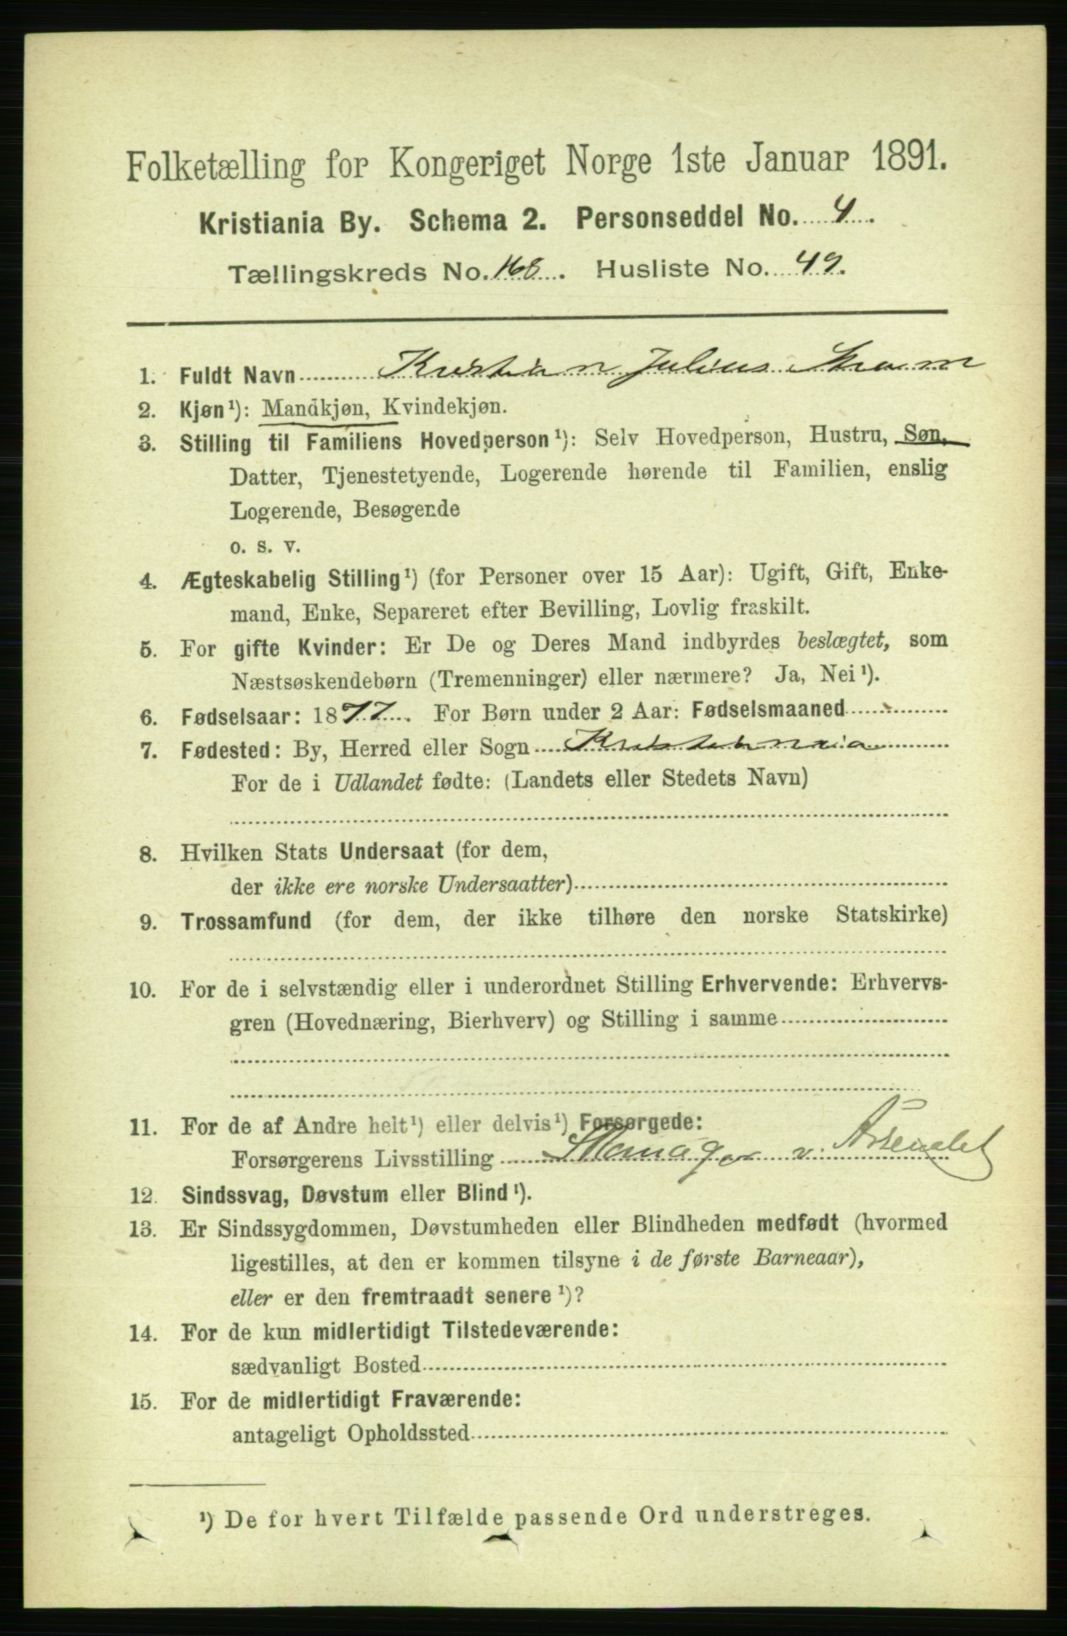 Folketælling for Kongeriget Norge 1ste Januar 1891.
Kristiania By. Schema 2. Personseddel No. 4.
Tællingskreds No. 168. Husliste No. 49.
1. Fuldt Navn Kristian Julius Stram
2. Kjøn¹): Mandkjøn, Kvindekjøn.
3. Stilling til Familiens Hovedperson¹): Selv Hovedperson, Hustru, Søn,
Datter, Tjenestetyende, Logerende hørende til Familien, enslig
Logerende, Besøgende
o. s. v.
4. Ægteskabelig Stilling¹) (for Personer over 15 Aar): Ugift, Gift, Enke-
mand, Enke, Separeret efter Bevilling, Lovlig fraskilt.
5. For gifte Kvinder: Er De og Deres Mand indbyrdes beslægtet, som
Næstsøskendebørn (Tremenninger) eller nærmere? Ja, Nei¹).
6. Fødselsaar: 1877. For Børn under 2 Aar: Fødselsmaaned
7. Fødested: By, Herred eller Sogn Kristiania
For de i Udlandet fødte: (Landets eller Stedets Navn)
8. Hvilken Stats Undersaat (for dem,
der ikke ere norske Undersaatter)
9. Trossamfund (for dem, der ikke tilhøre den norske Statskirke)
10. For de i selvstændig eller i underordnet Stilling Erhvervende: Erhvervs-
gren (Hovednæring, Bierhverv) og Stilling i samme
11. For de af Andre helt¹) eller delvis¹) Forsørgede:
Forsørgerens Livsstilling Skomager v. Arsenalet
12. Sindssvag, Døvstum eller Blind¹).
13. Er Sindssygdommen, Døvstumheden eller Blindheden medfødt (hvormed
ligestilles, at den er kommen tilsyne i de første Barneaar),
eller er den fremtraadt senere¹)?
14. For de kun midlertidigt Tilstedeværende:
sædvanligt Bosted
15. For de midlertidigt Fraværende:
antageligt Opholdssted
¹) De for hvert Tilfælde passende Ord understreges.